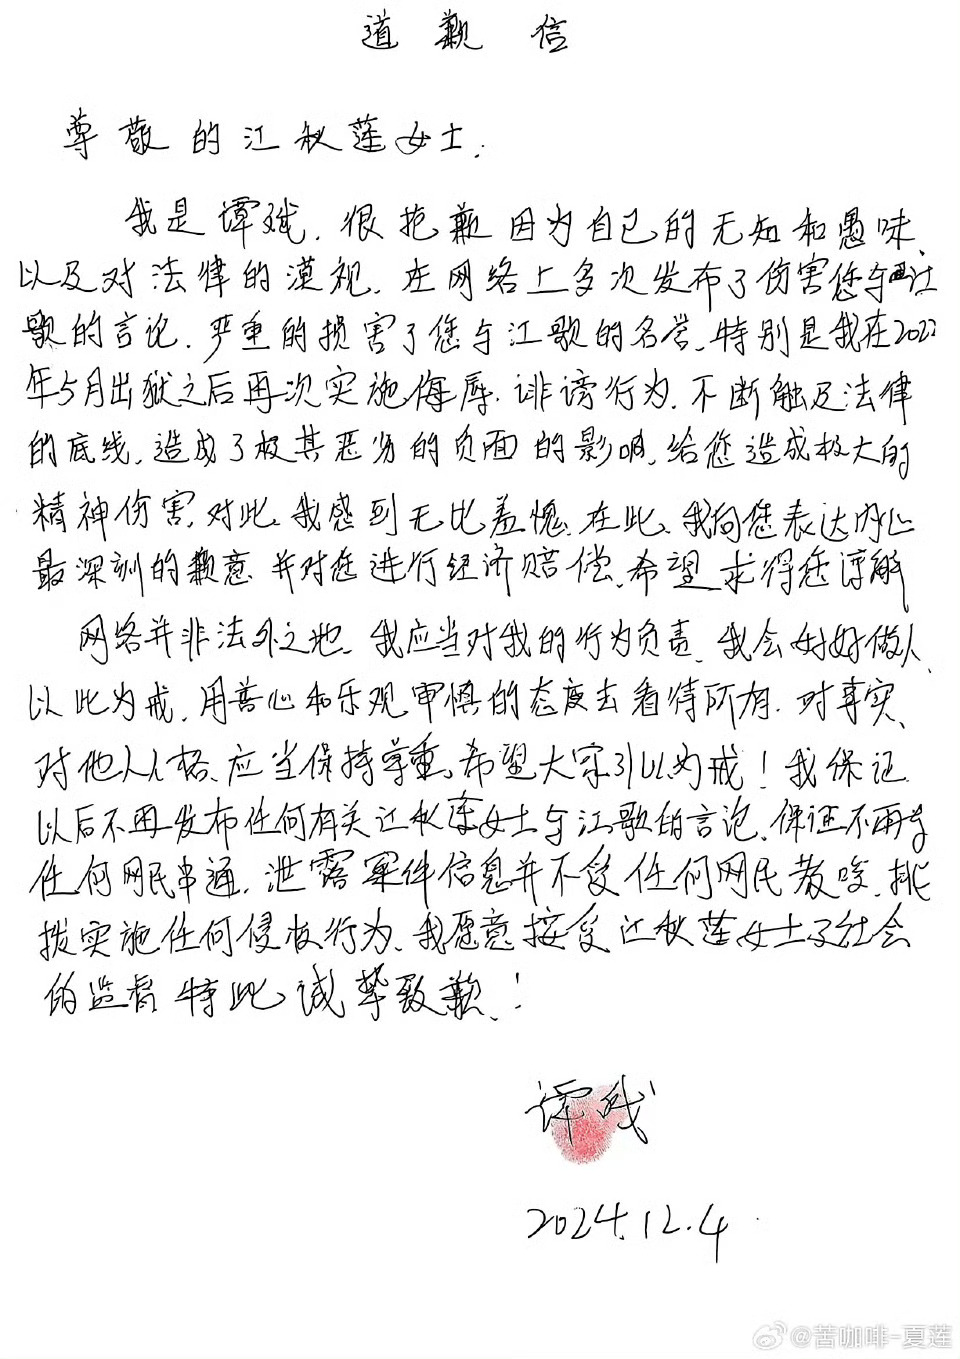 道歉信
尊敬的江秋莲女士.
我是谭斌.很抱歉因为自己的无知和愚昧、
以及对法律的漠视.在网络上多次发布了伤害您与江
歌的言论.严重的损害了您与江歌的名誉.特别是我在2022
年5月出狱之后再次实施侮辱.诽谤行为.不断触及法律
的底线.造成了极其恶劣的负面的影响.给您造成极大的
精神伤害.对此、我感到无比羞愧.在此、我向您表达内心
最深刻的歉意.并对您进行经济赔偿.希望求得您谅解
网络并非法外之地.我应当对我的行为负责.我会好好做人、
以此为戒.用善心和乐观审慎的态度去看待所有.对事实、
对他人人格、应当保持尊重.希望大家引以为戒！我保证
以后不再发布任何有关江秋莲女士与江歌的言论.保证不再与
任何网民串通.泄露案件信息并不受任何网民教唆.挑
拨实施任何侵权行为.我愿意接受江秋莲女士及社会
的监督 特此诚挚致歉.！
谭斌
2024.12.4
@苦咖啡-夏莲